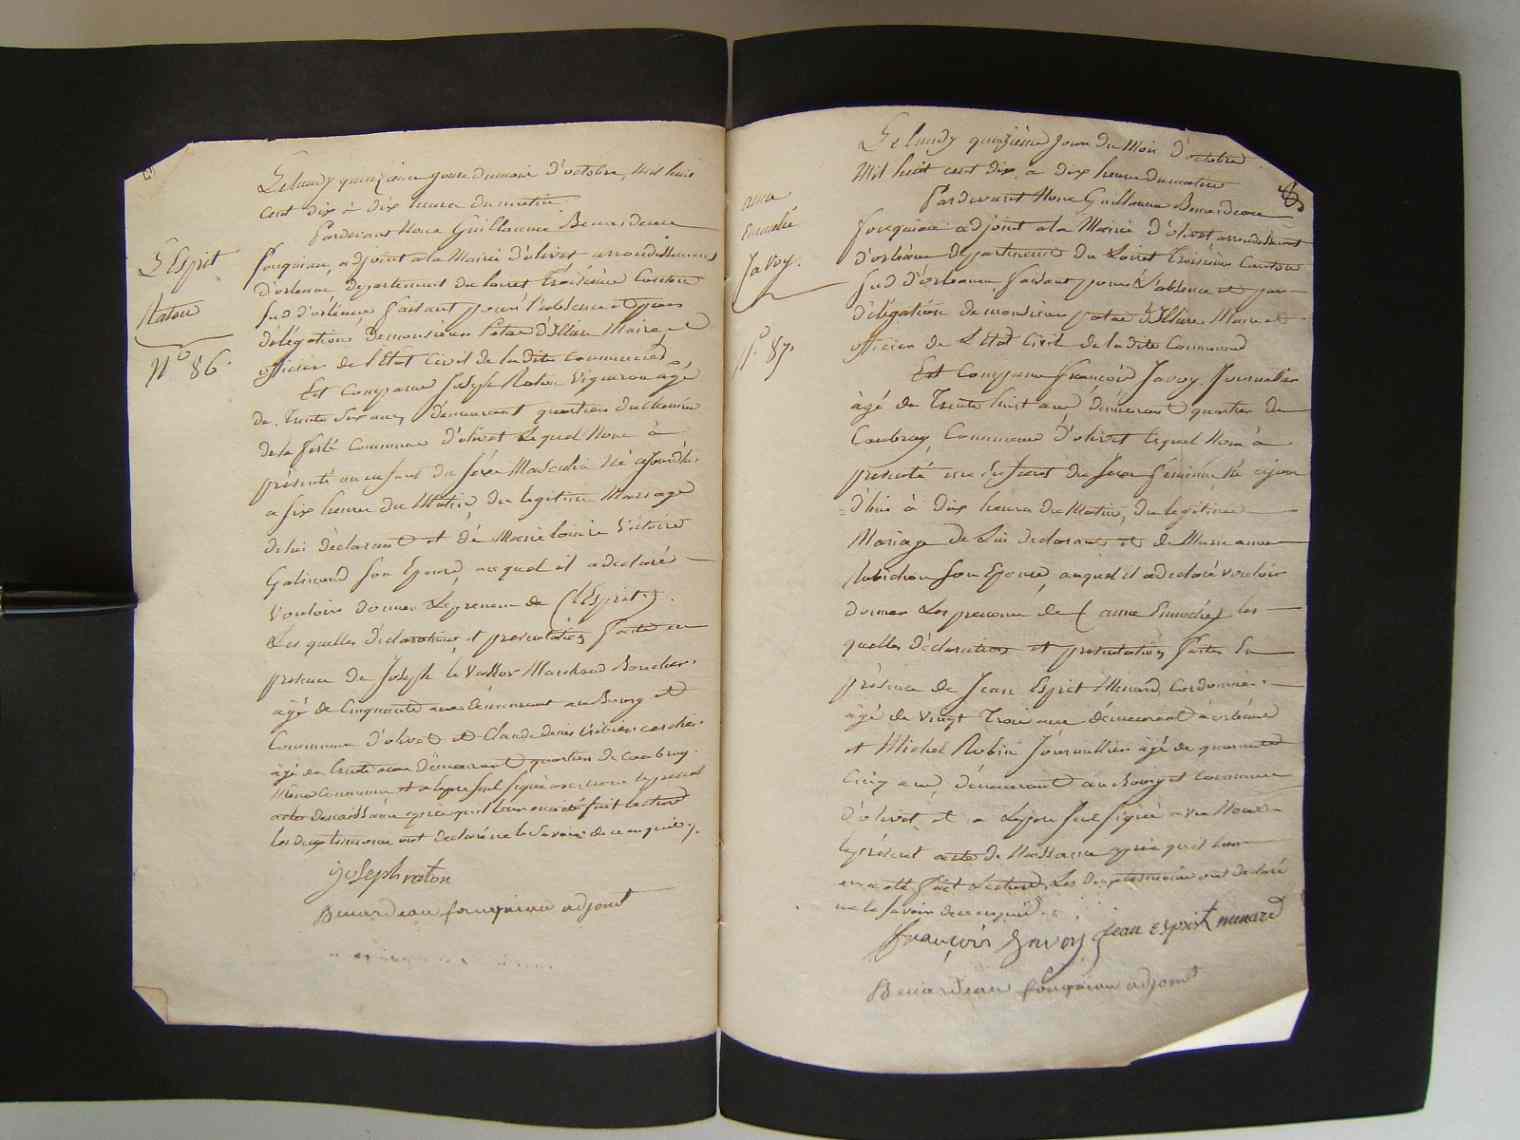 L'Esprit
Raton
N.º 86.
Le lundy quinzieme jour du mois d'octobre, Mil huit
cent dix à dix heures du matin.
Pardevant Nous Guillaume Benardeau
fouqueau, adjoint a la Mairie d'olivet arrondissement
d'orleans, departement du loiret troisième Canton
Sud d'orléans faisant pour l'absence et par
délégation de monsieur Potar d'Illiers Maire, et
officier de l'Etat Civil de la dite Commune
Est Comparu Joseph Raton Vigneron agé
de trente six ans, demeurant quartier du Chemin
de la ferté Commune d'olivet Lequel Nous à
présenté un enfant du sexe Masculin né ajourd'hui
a six heures du Matin, du legitime Mariage
de lui déclarant et de Marie
son Epouse, auquel il a declaré
Vouloir donner Le prenom de (L'Esprit).
Les quelles déclarations et présentation faite en
présence de Joseph le Vassor Marchand Boucher
âgé de Cinquante ans demeurant au Bourg et
Commune d'olivet et Claude denis
âgé de trente ans demeurant quartier de Coubray
Même Commune et a le père seul signé avec nous le présent
acte de naissance après qu'il leur en a été fait lecture
les deux témoins ont déclaré ne le savoir de ce enquis.
joseph raton
Benardeau fouqueau adjoint
anne
Emedée
Javoy.
N.º 87.
Le lundy quinzième Jour du Mois d'octobre
Mil huit cent dix, a dix heures du matin
Pardevant Nous Guillaume Benardeau
fouqueau adjoint a la Mairie d'olivet, arrondissement
d'orléans Departement du Loiret troisième Canton
Sud d'orleans, faisant pour L'absence et par
délégation de monsieur potar d'Illiers Maire et
officier de L'Etat Civil de la dite Commune
Est Comparu françois Javoy Journalier
âgé de trente huit ans demeurant quartier de
Coubray, Commune d'olivet Lequel Nous à
presenté un enfant du Sexe féminin Né ajour
= d'hui à dix heures du Matin, du legitime
Mariage de Lui declarant et de Marie anne
Robichon son Epouse, auquel il a declaré vouloir
donner Les prenoms de (anne Emedée) les
quelles déclaration et présentation faites En
présence de Jean Esprit Menard, Cordonnier
âgé de vingt trois ans demeurant à orleans
et Michel Robin Journallier âgé de quarante
Cinq ans, demeurant au Bourg et Commune
d'olivet et a Le père seul signé avec Nous
le présent acte de Naissance après qu'il leur
en a été fait Lecture, Les Deux témoins ont declaré
ne le savoir de ce enquis.
françois Javoy jean esprit menard
Benardeau fouqueau adjoint